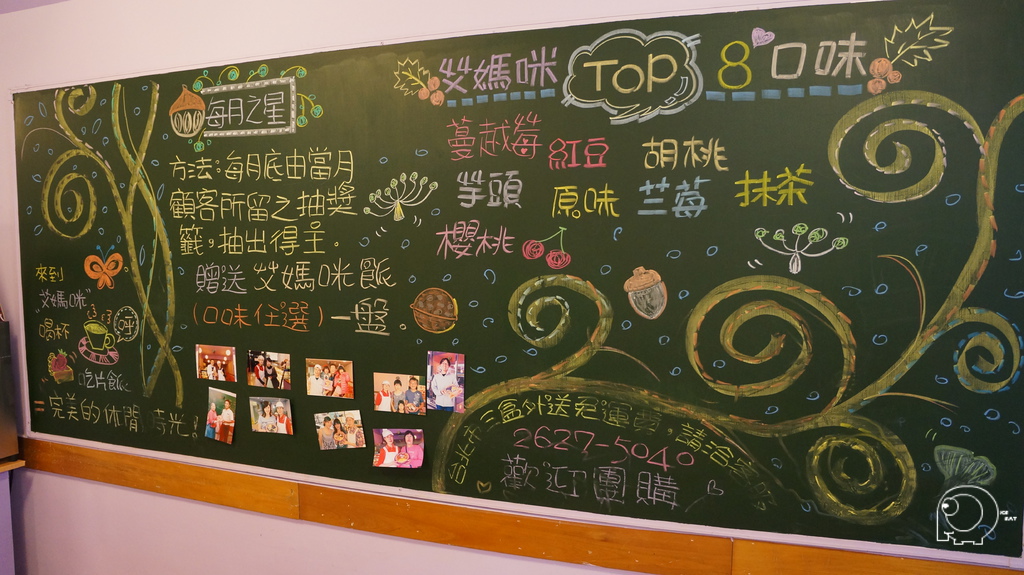 每月之星
方法：每月底由當月
顧客所留之抽獎
籤，抽出得主。
贈送艾媽咪飯
（口味任選）一盤。
來到
"艾媽咪"
喝杯
吃片飯
=完美的休閒時光！
艾媽咪 TOP 8 口味
蔓越莓 紅豆 胡桃
芋頭 原味 兰莓 抹茶
櫻桃
台北市三盒外送免運費，請洽
2627-5040
歡迎團購
ICE
EAT